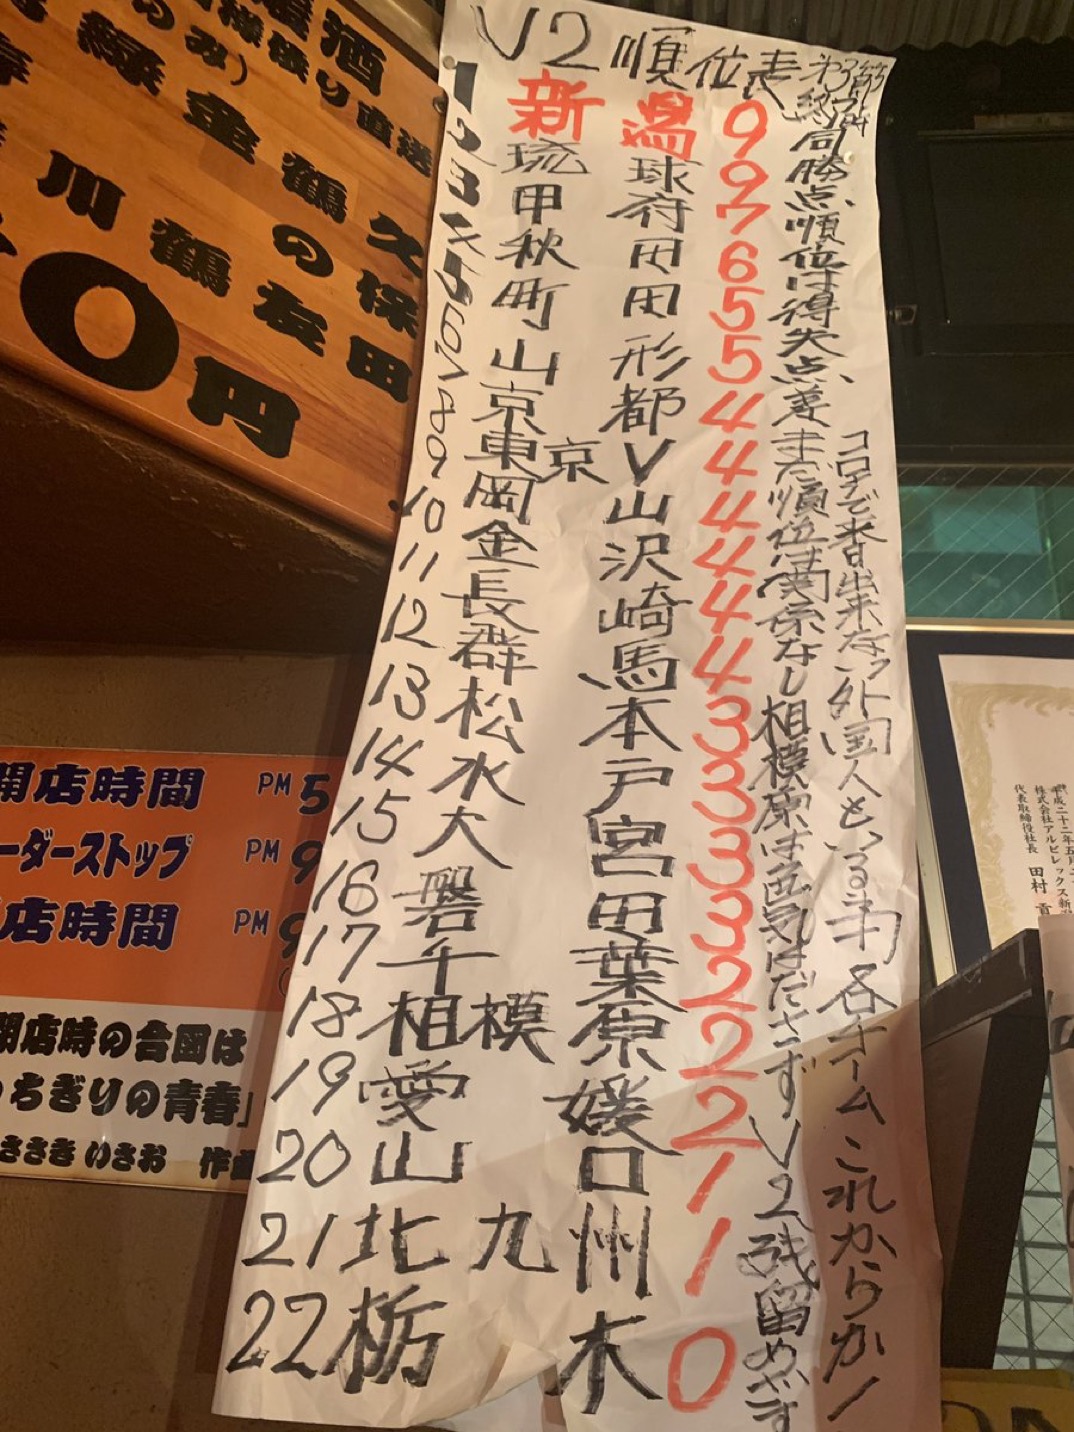 V2順位表
第3節終了時
1 新潟 9
2 琉球 9
3 甲府 7
4 秋田 6
5 町田 5
6 山形 5
7 京都 4
8 東京V 4
9 岡山 4
10 金沢 4
11 長崎 4
12 群馬 4
13 松本 3
14 水戸 3
15 大宮 3
16 磐田 3
17 千葉 2
18 相模原 2
19 愛媛 2
20 山口 1
21 北九州 1
22 栃木 0
同勝点順位は得失点差 まだ順位は関係なし 相模原は色気はださず V2残留めざす
コロナで来日出来ない外国人もいる 各チームこれからか!
酒
直送
のみ)
緑
金鶴
久保
川鶴
の
友田
0円
開店時間 PM5
ーダーストップ PM9
店時間 PM9
開店時の合図は
っちぎりの青春」
ささき いさお 作曲
平成二十二年五月
株式会社アルビレックス新潟
代表取締役社長 田村 貢